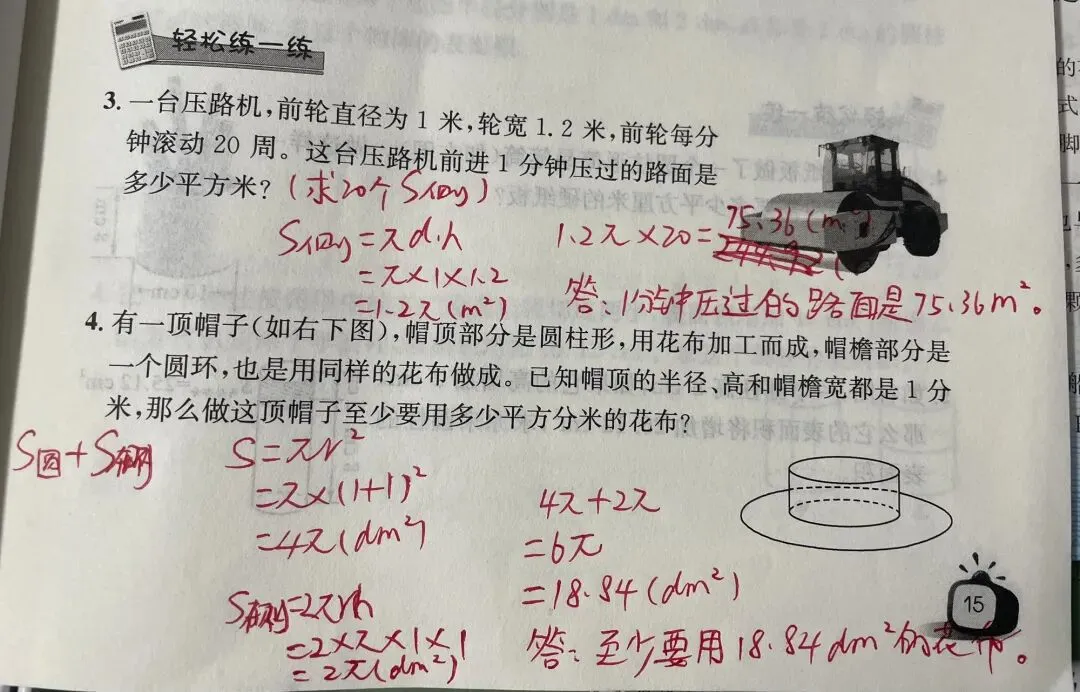 轻松练一练
3. 一台压路机,前轮直径为 1 米,轮宽 1.2 米,前轮每分
钟滚动 20 周。这台压路机前进 1 分钟压过的路面是
多少平方米?(求20个S侧)
S侧=πd·h
=π×1×1.2
=1.2π(m²)
1.2π×20=75.36(m²)
答:1分钟压过的路面是75.36m²。
4. 有一顶帽子(如右下图),帽顶部分是圆柱形,用花布加工而成,帽檐部分是
一个圆环,也是用同样的花布做成。已知帽顶的半径、高和帽檐宽都是 1 分
米,那么做这顶帽子至少要用多少平方分米的花布?
S圆+S侧
S=πr²
=π×(1+1)²
=4π(dm²)
S侧=2πrh
=2×π×1×1
=2π(dm²)
4π+2π
=6π
=18.84(dm²)
答:至少要用18.84dm²的花布。
15